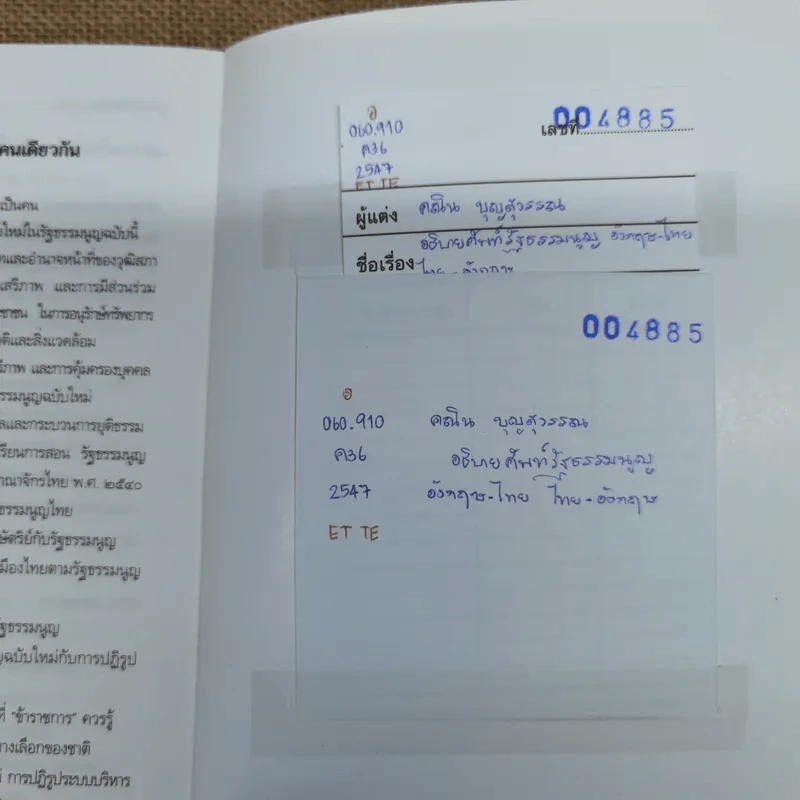 คนเดียวกัน
เป็นคน
ใหม่ในรัฐธรรมนูญฉบับนี้
และอำนาจหน้าที่ของวุฒิสภา
เสรีภาพ และการมีส่วนร่วม
ในการอนุรักษ์ทรัพยากร
และสิ่งแวดล้อม
และการคุ้มครองบุคคล
ธรรมนูญฉบับใหม่
และกระบวนการยุติธรรม
เรียนการสอน รัฐธรรมนูญ
อาณาจักรไทย พ.ศ. ๒๕๔๐
ธรรมนูญไทย
กษัตริย์กับรัฐธรรมนูญ
เมืองไทยตามรัฐธรรมนูญ
รัฐธรรมนูญ
ฉบับใหม่กับการปฏิรูป
ที่ "ข้าราชการ" ควรรู้
ทางเลือกของชาติ
การปฏิรูประบบบริหาร
อ
060.910
ค36
2547
ET TE
เลขที่ 004885
ผู้แต่ง คณิน บุญสุวรรณ
ชื่อเรื่อง อธิบายศัพท์รัฐธรรมนูญ อังกฤษ-ไทย
ไทย-อังกฤษ
004885
อ
060.910 คณิน บุญสุวรรณ
ค36 อธิบายศัพท์รัฐธรรมนูญ
2547 อังกฤษ-ไทย ไทย-อังกฤษ
ET TE